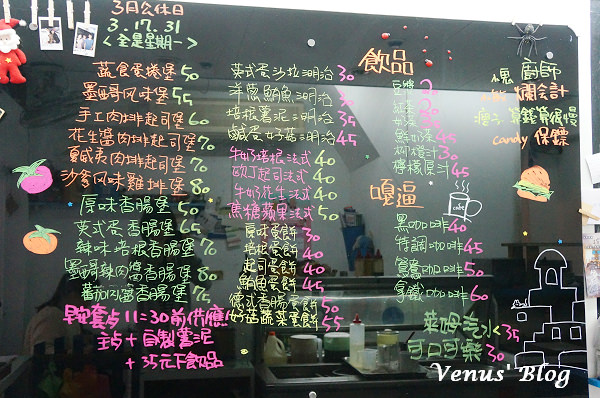 3月公休日
3. 17. 31
<全是星期一>
蔬食蛋捲堡 50
墨西哥风味堡 55
手工肉排起司堡 60
花生醬肉排起司堡 70
夏威夷肉排起司堡 70
沙嗲风味雞排堡 80
原味香腸堡 50
英式蛋香腸堡 65
辣味培根香腸堡 70
墨西哥辣肉醬香腸堡 80
蕃茄肉醬香腸堡 75
早套餐 11:30前供應
主点 + 自製薯泥
+ 35元下飲品
英式蛋沙拉三明治 30
洋蔥鮪魚三明治 30
培根薯泥三明治 35
鹹蛋奶菇三明治 45
牛奶培根法式 40
歐丁起司法式 40
牛奶花生法式 40
焦糖蘋果法式 50
原味蛋餅 30
培根蛋餅 40
起司蛋餅 40
鮪魚蛋餅 45
德式香腸蛋餅 50
奶菇蔬菜蛋餅 55
飲品
豆漿 2
紅茶 20
奶茶 30
鮮奶茶 45
柳橙汁 30
檸檬原汁 45
嘎逼
黑咖啡 40
特調咖啡 45
鴛鴦咖啡 50
拿鐵咖啡 60
萊姆克 35
可口可樂 30
塊 廚師
爛會計
瘦子 算錢算很慢
candy 保鏢
Venus' Blog